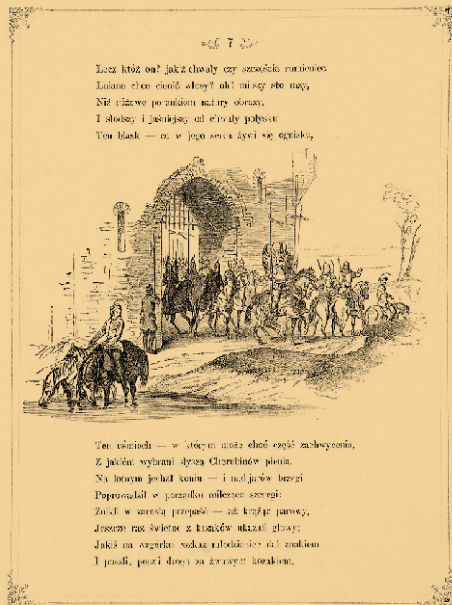 7
Lecz któż on? jakiż chwały czy szczęścia rumieniec
Lniane chce cienić włosy? oh! milszy sto razy,
Niż różowe porankiem natury obrazy,
I słodszy i jaśniejszy od chwały połysku
Ten blask — co w jego serca żywi się ognisku,
Ten uśmiech — w którym może choć część zachwycenia,
Z jakiém wybrani słyszą Cherubinów pienia.
Na lotnym jechał koniu — i nad jarów brzegi
Poprowadził w porządku milczące szeregi:
Znikli w zarosłą przepaść — aż krążąc parowy,
Jeszcze raz świetne z krzaków ukazali głowy;
Jakiś na wzgórku rozkaz młodzieniec dał znakiem
I poszli, poszli drogą za żwawym kozakiem,